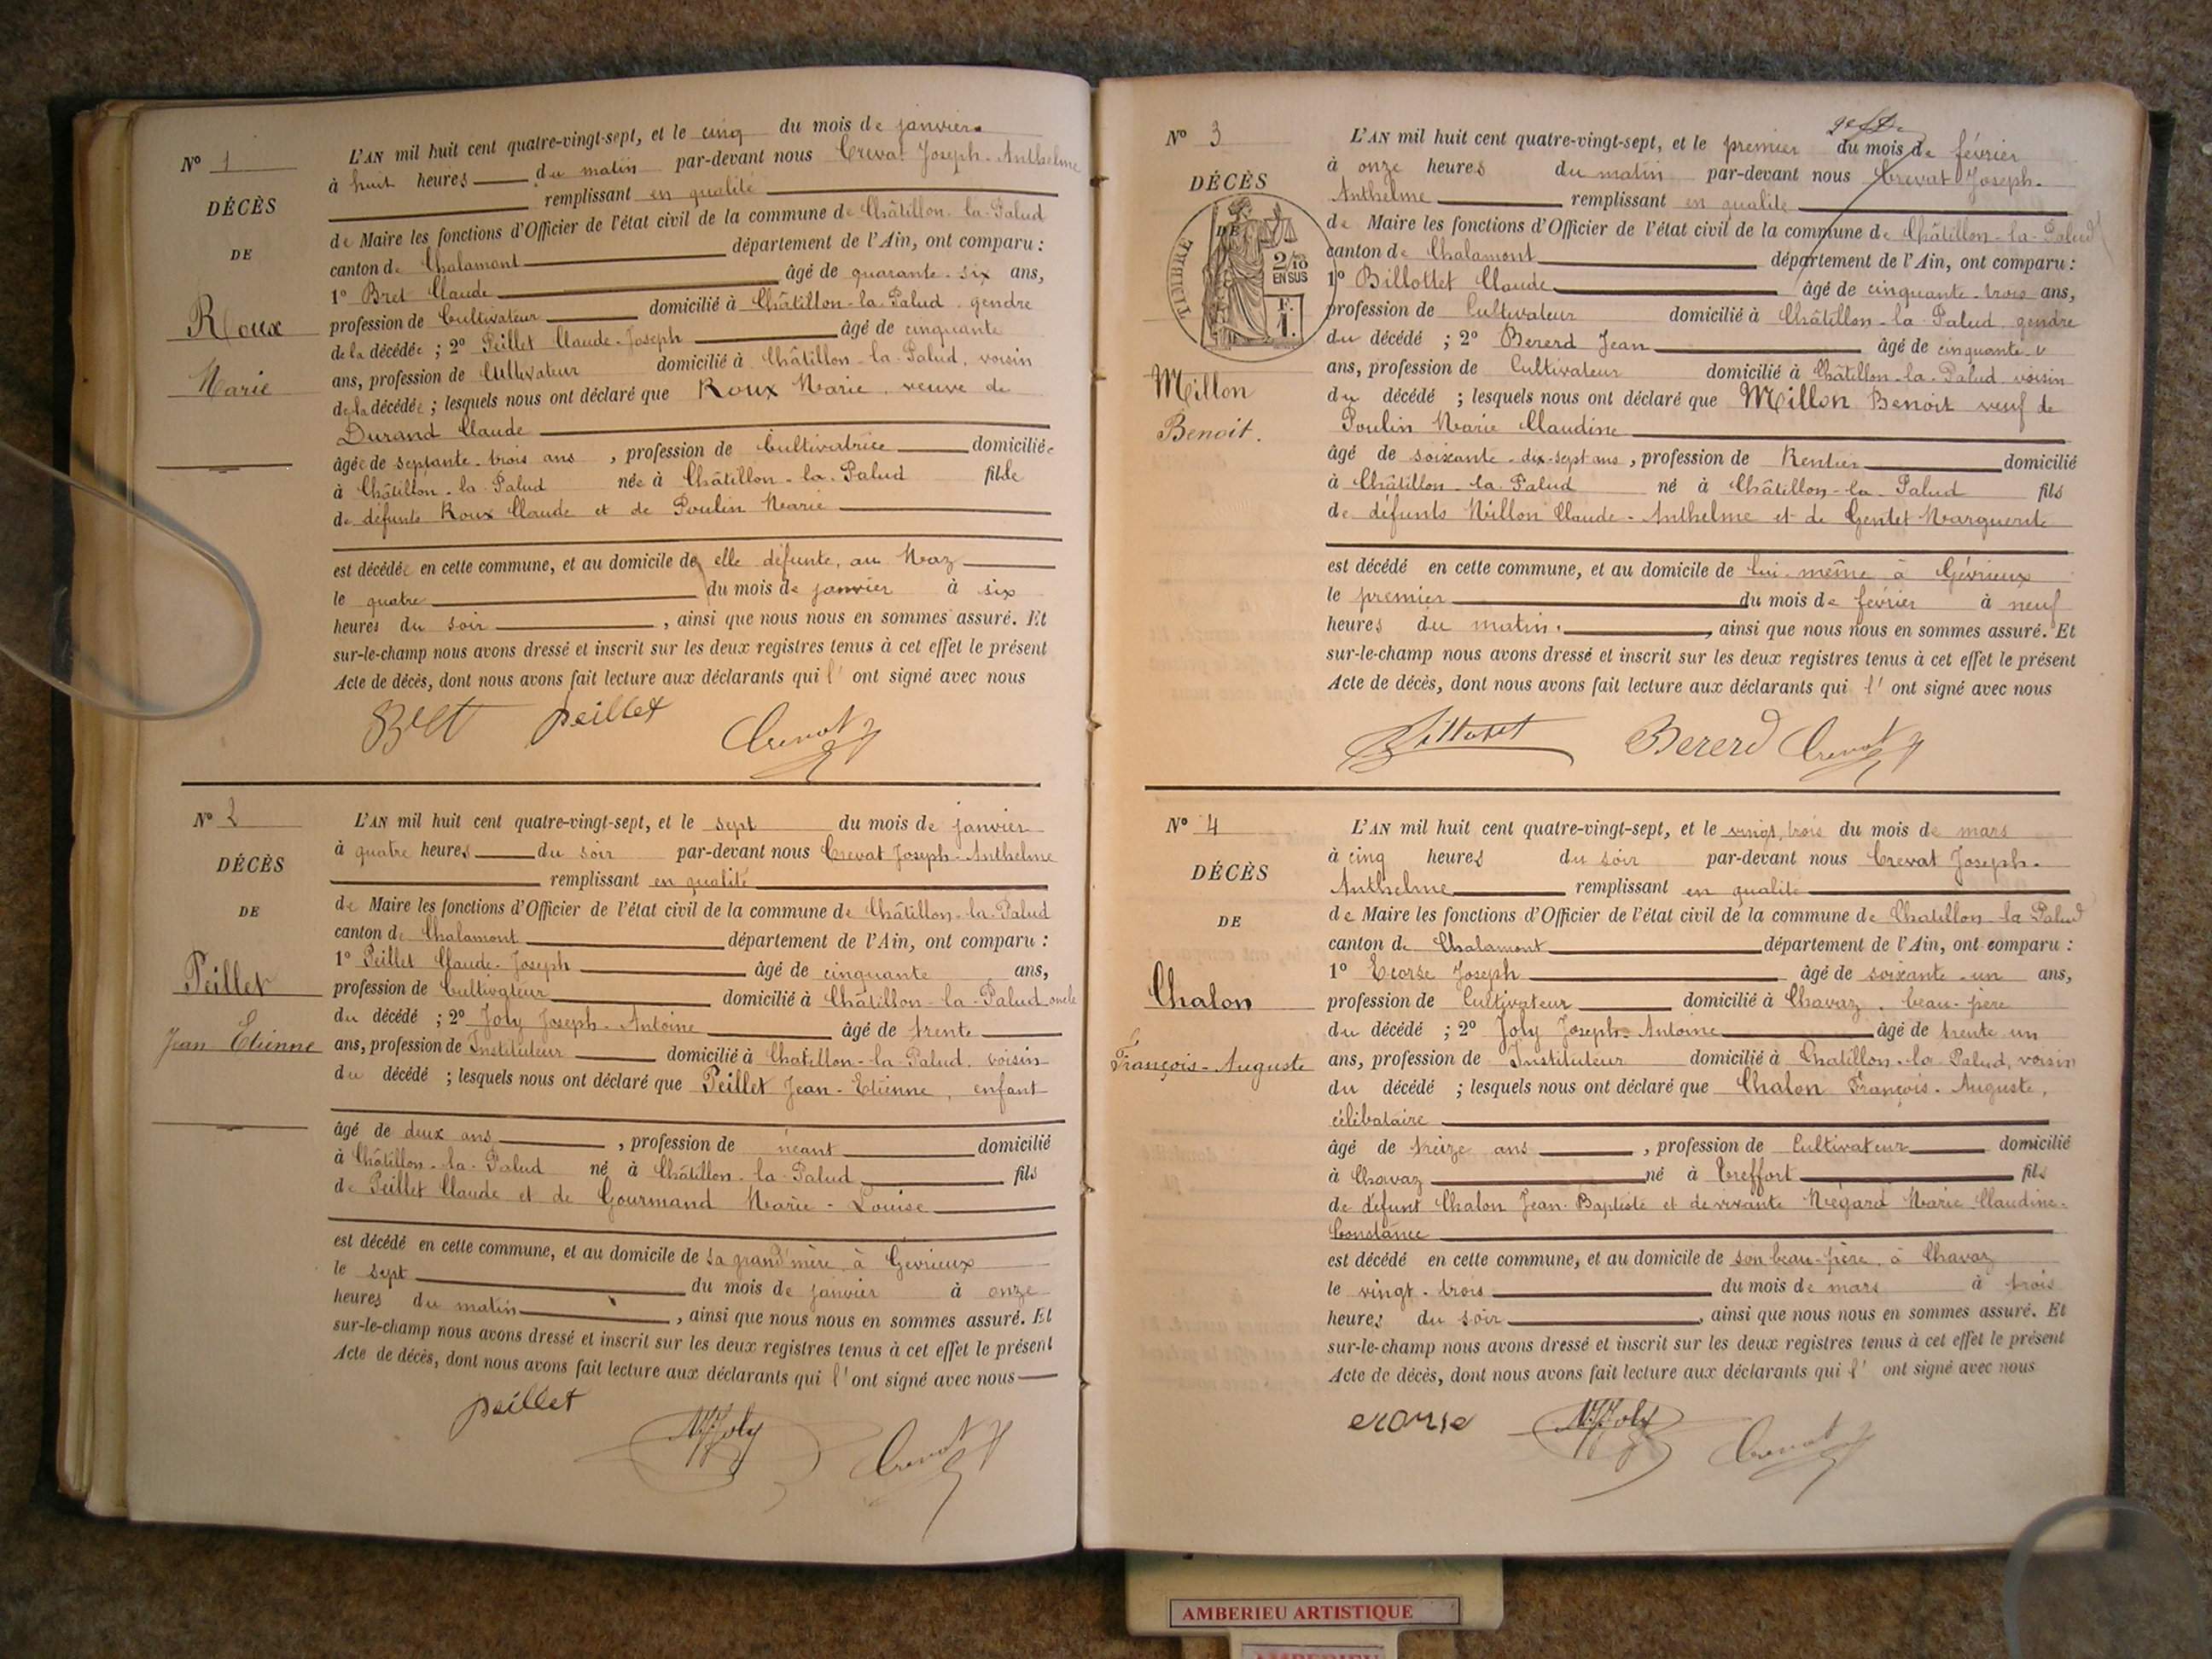 N° 1
DÉCÈS
DE
Roux
Marie
L'AN mil huit cent quatre-vingt-sept, et le cinq du mois de janvier
à huit heures du matin par-devant nous Crevat Joseph-Anthelme
remplissant en qualité
de Maire les fonctions d'Officier de l'état civil de la commune de Châtillon-la-Palud
canton de Chalamont département de l'Ain, ont comparu :
1° Bret Claude âgé de quarante-six ans,
profession de Cultivateur domicilié à Châtillon-la-Palud, gendre
de la décédée ; 2° Peillet Claude-Joseph âgé de cinquante
ans, profession de Cultivateur domicilié à Châtillon-la-Palud, voisin
de la décédée ; lesquels nous ont déclaré que Roux Marie, veuve de
Durand Claude
âgée de septante-trois ans, profession de Cultivatrice domiciliée
à Châtillon-la-Palud née à Châtillon-la-Palud fille
de défunts Roux Claude et de Poulin Marie
est décédée en cette commune, et au domicile de elle défunte, au Maz
le quatre du mois de janvier à six
heures du soir, ainsi que nous nous en sommes assuré. Et
sur-le-champ nous avons dressé et inscrit sur les deux registres tenus à cet effet le présent
Acte de décès, dont nous avons fait lecture aux déclarants qui l'ont signé avec nous
Bret peillet Crevat
N° 2
DÉCÈS
DE
Peillet
Jean Etienne
L'AN mil huit cent quatre-vingt-sept, et le sept du mois de janvier
à quatre heures du soir par-devant nous Crevat Joseph-Anthelme
remplissant en qualité
de Maire les fonctions d'Officier de l'état civil de la commune de Châtillon-la-Palud
canton de Chalamont département de l'Ain, ont comparu :
1° Peillet Claude-Joseph âgé de cinquante ans,
profession de Cultivateur domicilié à Châtillon-la-Palud oncle
du décédé ; 2° Joly Joseph-Antoine âgé de trente
ans, profession de Instituteur domicilié à Chatillon-la-Palud, voisin
du décédé ; lesquels nous ont déclaré que Peillet Jean-Etienne, enfant
âgé de deux ans, profession de néant domicilié
à Châtillon-la-Palud né à Châtillon-la-Palud fils
de Peillet Claude et de Gourmand Marie-Louise
est décédé en cette commune, et au domicile de sa grand'mère à Gévrieux
le sept du mois de janvier à onze
heures du matin, ainsi que nous nous en sommes assuré. Et
sur-le-champ nous avons dressé et inscrit sur les deux registres tenus à cet effet le présent
Acte de décès, dont nous avons fait lecture aux déclarants qui l'ont signé avec nous
peillet Joly Crevat
N° 3
DÉCÈS
DE
TIMBRE
2/10
EN SUS
F.
1.
Millon
Benoit.
L'AN mil huit cent quatre-vingt-sept, et le premier du mois de février
à onze heures du matin par-devant nous Crevat Joseph-
Anthelme remplissant en qualité
de Maire les fonctions d'Officier de l'état civil de la commune de Châtillon-la-Palud
canton de Chalamont département de l'Ain, ont comparu :
1° Billottet Claude âgé de cinquante-trois ans,
profession de Cultivateur domicilié à Châtillon-la-Palud, gendre
du décédé ; 2° Bererd Jean âgé de cinquante
ans, profession de Cultivateur domicilié à Châtillon-la-Palud voisin
du décédé ; lesquels nous ont déclaré que Millon Benoit veuf de
Poulin Marie Claudine
âgé de soixante-dix-sept ans, profession de Rentier domicilié
à Châtillon-la-Palud né à Châtillon-la-Palud fils
de défunts Millon Claude-Anthelme et de Gentet Marguerite
est décédé en cette commune, et au domicile de lui-même à Gévrieux
le premier du mois de février à neuf
heures du matin, ainsi que nous nous en sommes assuré. Et
sur-le-champ nous avons dressé et inscrit sur les deux registres tenus à cet effet le présent
Acte de décès, dont nous avons fait lecture aux déclarants qui l'ont signé avec nous
Billottet Bererd Crevat
N° 4
DÉCÈS
DE
Chalon
François-Auguste
L'AN mil huit cent quatre-vingt-sept, et le vingt trois du mois de mars
à cinq heures du soir par-devant nous Crevat Joseph-
Anthelme remplissant en qualité
de Maire les fonctions d'Officier de l'état civil de la commune de Chatillon-la Palud
canton de Chalamont département de l'Ain, ont comparu :
1° Ecorse Joseph âgé de soixante-un ans,
profession de Cultivateur domicilié à Chavaz, beau-père
du décédé ; 2° Joly Joseph-Antoine âgé de trente un
ans, profession de Instituteur domicilié à Chatillon-la-Palud, voisin
du décédé ; lesquels nous ont déclaré que Chalon François-Auguste,
célibataire
âgé de treize ans, profession de Cultivateur domicilié
à Chavaz né à Treffort fils
de défunt Chalon Jean-Baptiste et de vivante Mégard Marie Claudine-
Constance
est décédé en cette commune, et au domicile de son beau-père, à Chavaz
le vingt-trois du mois de mars à trois
heures du soir, ainsi que nous nous en sommes assuré. Et
sur-le-champ nous avons dressé et inscrit sur les deux registres tenus à cet effet le présent
Acte de décès, dont nous avons fait lecture aux déclarants qui l'ont signé avec nous
Joly Crevat
AMBERIEU ARTISTIQUE
AMBERIEU